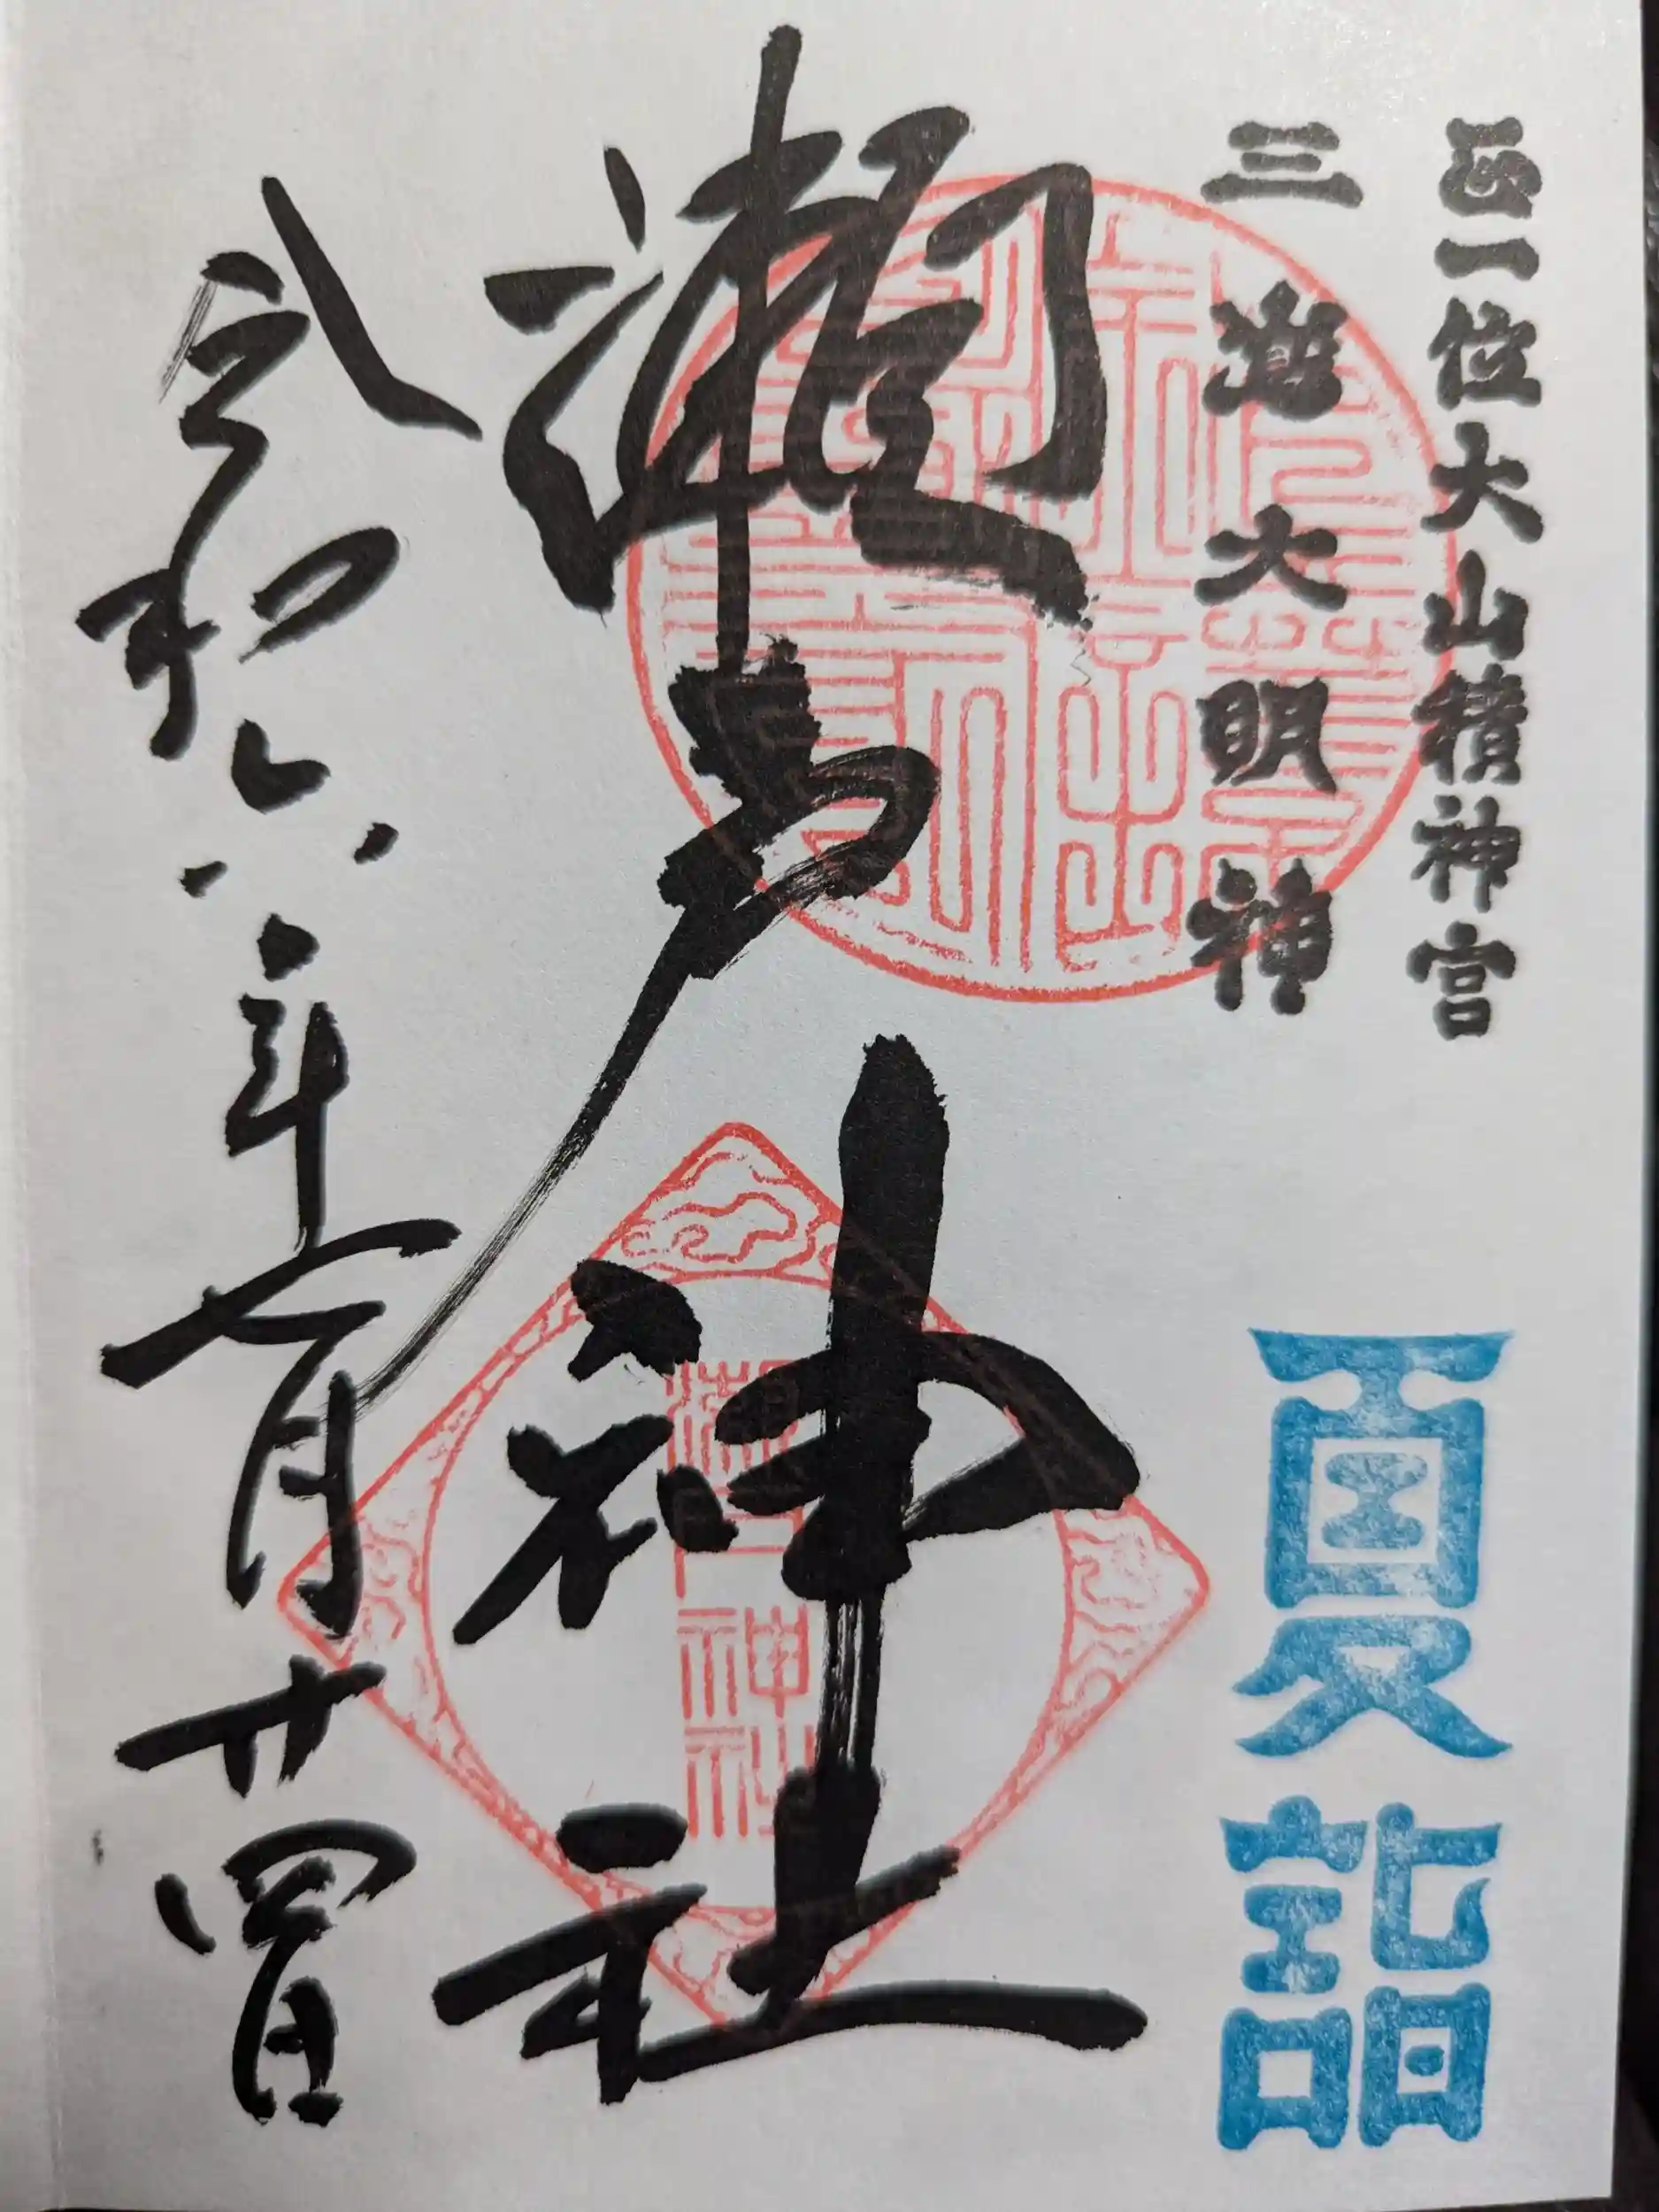 正一位大山積神宮
三嶋大明神
夏詣
瀬戸神社
令和六年七月廿四日